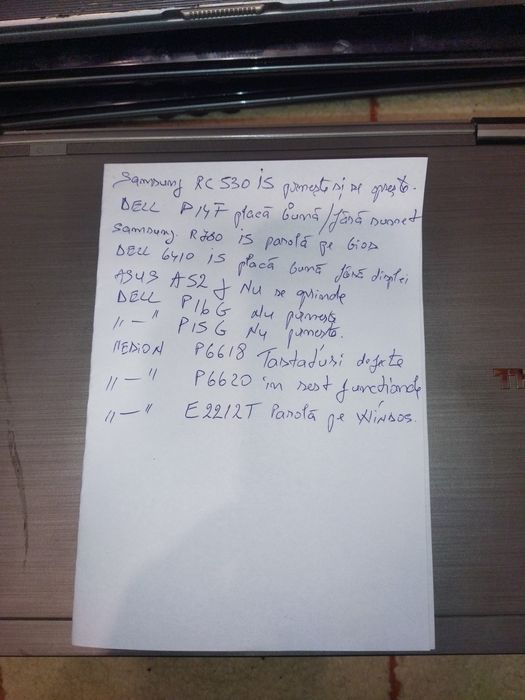 Samsung RC 530 i5 pornește și se oprește.
DELL P14F placă bună/fără sunet
Samsung. R780 i5 parolă pe bios
DELL 6410 i5 placă bună fără displei
ASUS A52 J Nu se aprinde
DELL P16 G Nu pornește
,,—" P15 G Nu pornește.
MEDION P6618 Tastaturi defecte
,,—" P6620 în rest funcționale
,,—" E2212T Parolă pe WINDOS.